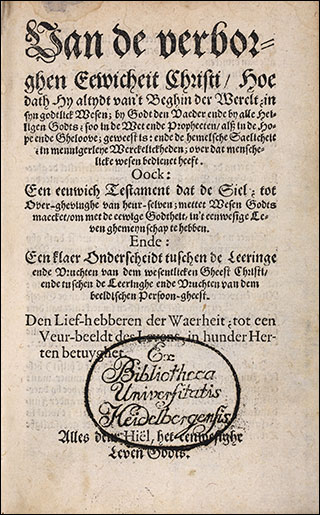 Van de verbor⸗
ghen Eewicheit Christi/ Hoe
dath Hy altydt van't Beghin der Werelt; in
syn godtlick Wesen; by Godt den Vaeder ende by alle Hei⸗
ligen Godts; soo in de Wet ende Propheeten/ alß in de Ho⸗
pe ende Gheloove; geweest is: ende de hemelsche Saelicheit
in mennigerleye Werckelickheden; over dat mensche⸗
licke wesen bedienet heeft.
Oock:
Een eeuwich Testament dat de Siel; tot
Over-ghevinghe van heur-selven; mettet Wesen Godts
maecket/ om met de eewige Godtheit, in't eenwesige Le⸗
ven ghemeynschap te hebben.
Ende:
Een klaer Onderscheidt tuschen de Leeringe
ende Vruchten van dem wesentlicken Gheest Christi/
ende tuschen de Leeringhe ende Vruchten van dem
beeldischen Persoon-gheest.
Den Lief-hebberen der Waerheit; tot een
Veur-beeldt des Levens, in hunder Her⸗
ten betuyghet
Ex
Bibliotheca
Universitatis
Heidelbergensis
Alles deur Hiël, het eenwesighe
Leven Godts.